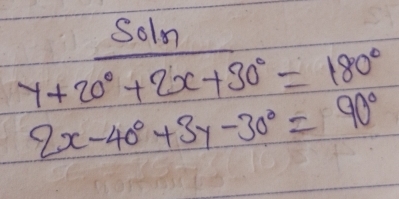 Soln
y+20°+2x+30°= 180°
2x-40°+3y-30°= 90°